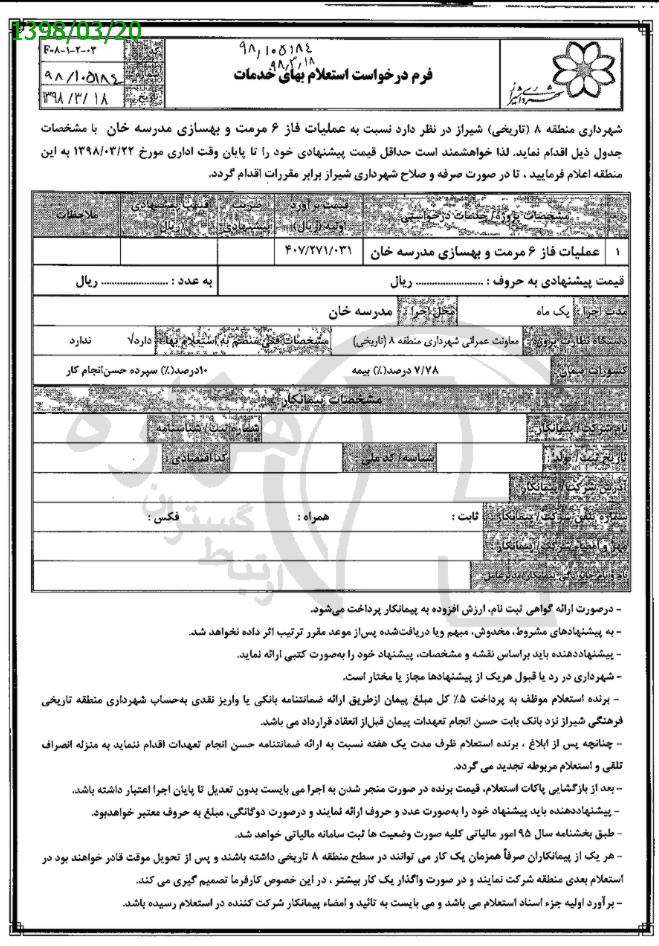 1398/03/20
F-۸-۱-۲-۰۳
۹۸/۱۰۵۱۸۴
۹۸/۱۰۵۱۸۴
۹۸/۳/۱۸
۱۳۹۸/۳/۱۸
فرم درخواست استعلام بهای خدمات
شهرداری شیراز
شهرداری منطقه ۸ (تاریخی) شیراز در نظر دارد نسبت به عملیات فاز ۶ مرمت و بهسازی مدرسه خان با مشخصات
جدول ذیل اقدام نماید. لذا خواهشمند است حداقل قیمت پیشنهادی خود را تا پایان وقت اداری مورخ ۱۳۹۸/۰۳/۲۲ به این
منطقه اعلام فرمایید ، تا در صورت صرفه و صلاح شهرداری شیراز برابر مقررات اقدام گردد.
مشخصات پروژه/خدمات درخواستی قیمت برآورد اولیه (ریال) ضریب پیشنهادی قیمت پیشنهادی (ریال) ملاحظات
۱ عملیات فاز ۶ مرمت و بهسازی مدرسه خان ۴۰۷/۲۷۱/۰۳۱
قیمت پیشنهادی به حروف : ........................ ریال به عدد : ........................ ریال
مدت اجرا: یک ماه محل اجرا : مدرسه خان
دستگاه نظارت پروژه: معاونت عمرانی شهرداری منطقه ۸ (تاریخی) مشخصات فنی منضم به استعلام بها: دارد√ ندارد
کسورات پیمان: ۷/۷۸ درصد(٪) بیمه ۱۰درصد(٪) سپرده حسن‌انجام کار
مشخصات پیمانکار
نام شرکت/ پیمانکار: شماره ثبت/ شناسنامه
تاریخ ثبت/ تولد: شناسه/ کد ملی : کد اقتصادی:
آدرس شرکت/ پیمانکار:
شماره تلفن شرکت/ پیمانکار: ثابت : همراه : فکس :
مهر و امضاء شرکت/ پیمانکار:
هزاره
گستران
ارتباط
- درصورت ارائه گواهی ثبت نام، ارزش افزوده به پیمانکار پرداخت می‌شود.
- به پیشنهادهای مشروط، مخدوش، مبهم ویا دریافت‌شده پس‌از موعد مقرر ترتیب اثر داده نخواهد شد.
- پیشنهاددهنده باید براساس نقشه و مشخصات، پیشنهاد خود را به‌صورت کتبی ارائه نماید.
- شهرداری در رد یا قبول هریک از پیشنهادها مجاز یا مختار است.
- برنده استعلام موظف به پرداخت ۵٪ کل مبلغ پیمان ازطریق ارائه ضمانتنامه بانکی یا واریز نقدی به‌حساب شهرداری منطقه تاریخی
فرهنگی شیراز نزد بانک بابت حسن انجام تعهدات پیمان قبل‌از انعقاد قرارداد می باشد.
- چنانچه پس از ابلاغ ، برنده استعلام ظرف مدت یک هفته نسبت به ارائه ضمانتنامه حسن انجام تعهدات اقدام ننماید به منزله انصراف
تلقی و استعلام مربوطه تجدید می گردد.
- بعد از بازگشایی پاکات استعلام، قیمت برنده در صورت منجر شدن به اجرا می بایست بدون تعدیل تا پایان اجرا اعتبار داشته باشد.
- پیشنهاددهنده باید پیشنهاد خود را به‌صورت عدد و حروف ارائه نمایند و درصورت دوگانگی، مبلغ به حروف معتبر خواهدبود.
- طبق بخشنامه سال ۹۵ امور مالیاتی کلیه صورت وضعیت ها ثبت سامانه مالیاتی خواهد شد.
- هر یک از پیمانکاران صرفاً همزمان یک کار می توانند در سطح منطقه ۸ تاریخی داشته باشند و پس از تحویل موقت قادر خواهند بود در
استعلام بعدی منطقه شرکت نمایند و در صورت واگذار یک کار بیشتر ، در این خصوص کارفرما تصمیم گیری می کند.
- برآورد اولیه جزء اسناد استعلام می باشد و می بایست به تائید و امضاء پیمانکار شرکت کننده در استعلام رسیده باشد.